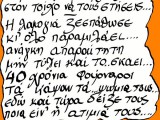 στον τοίχο να τους στήσεις...
Η λαμογιά ξεσπάθωσε
κι όλο παραμιλάει....
ανάγκη απαραίτητη
μην τύχει και το σκάει....
40 χρόνια φούρναροι
τα ψάχναν τα ψωμιά τους...
εδώ και τώρα δείξε τους
ποια είν' η ατιμία τους...